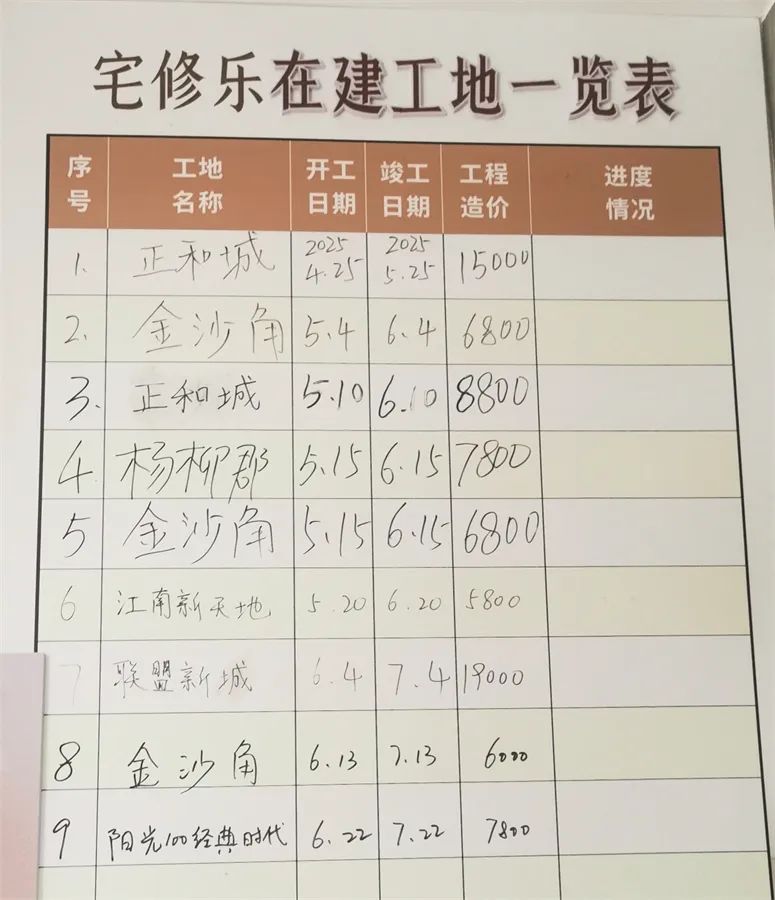 宅修乐在建工地一览表
序号 工地名称 开工日期 竣工日期 工程造价 进度情况
1. 正和城 2025 4.25 2025 5.25 15000
2. 金沙角 5.4 6.4 6800
3. 正和城 5.10 6.10 8800
4 杨柳郡 5.15 6.15 7800
5 金沙角 5.15 6.15 6800
6 江南新天地 5.20 6.20 5800
7 联盟新城 6.4 7.4 19000
8 金沙角 6.13 7.13 6000
9 阳光100经典时代 6.22 7.22 7800